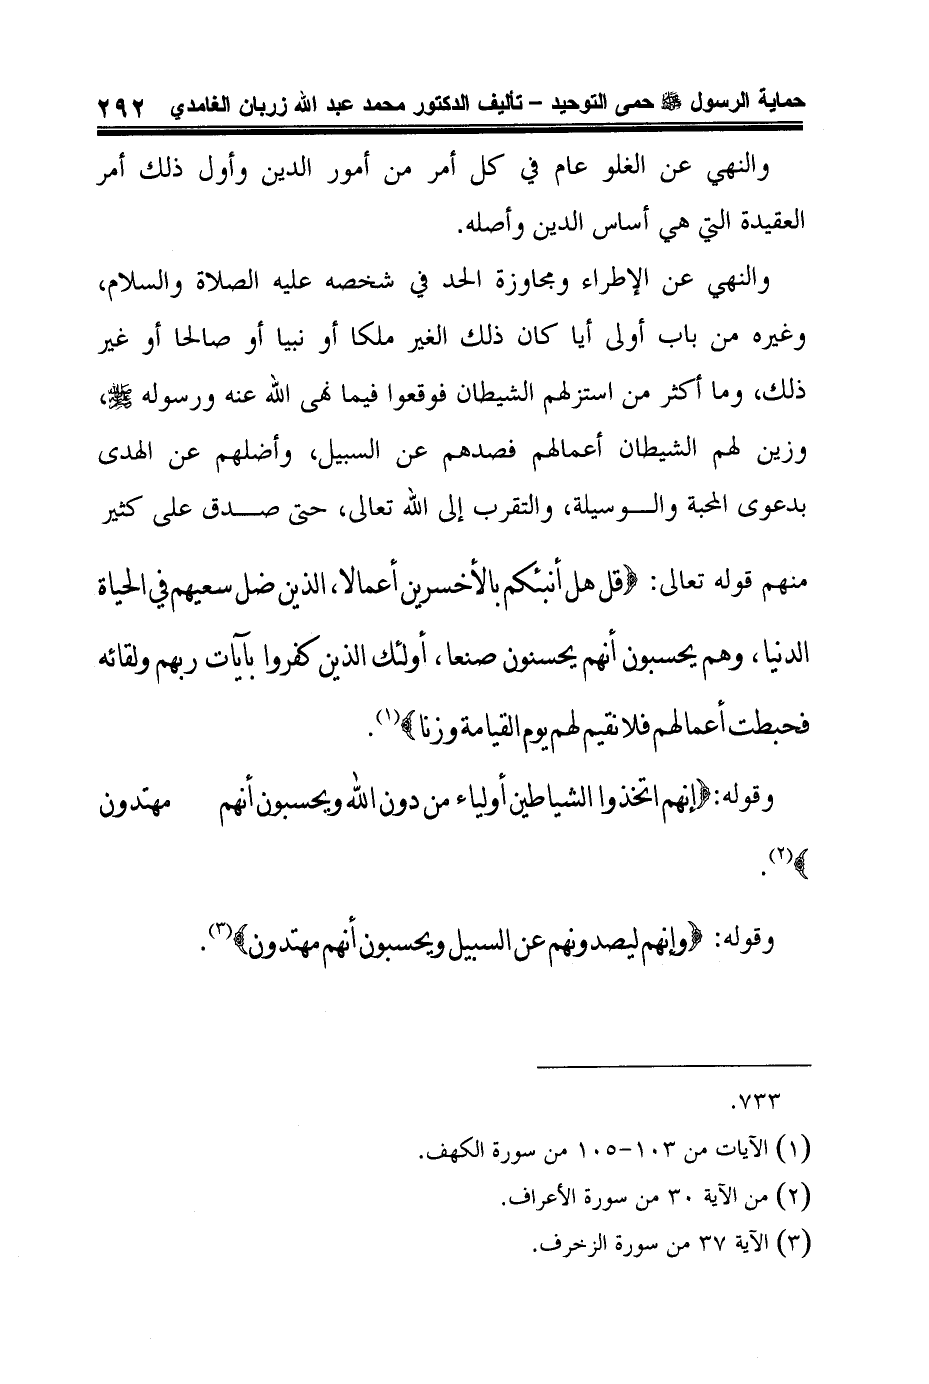 حماية الرسول ﷺ حمى التوحيد – تأليف الدكتور محمد عبد الله زربان الغامدي ٢٩٢
والنهي عن الغلو عام في كل أمر من أمور الدين وأول ذلك أمر
العقيدة التي هي أساس الدين وأصله.
والنهي عن الإطراء ومجاوزة الحد في شخصه عليه الصلاة والسلام،
وغيره من باب أولى أيا كان ذلك الغير ملكا أو نبيا أو صالحا أو غير
ذلك، وما أكثر من استزلهم الشيطان فوقعوا فيما نهى الله عنه ورسوله ﷺ،
وزين لهم الشيطان أعمالهم فصدهم عن السبيل، وأضلهم عن الهدى
بدعوى المحبة والـــوسيلة، والتقرب إلى الله تعالى، حتى صـــدق على كثير
منهم قوله تعالى: ﴿قل هل أنبئكم بالأخسرين أعمالا، الذين ضل سعيهم في الحياة
الدنيا، وهم يحسبون أنهم يحسنون صنعا، أولئك الذين كفروا بآيات ربهم ولقائه
فحبطت أعمالهم فلا نقيم لهم يوم القيامة وزنا﴾(١).
وقوله: ﴿إنهم اتخذوا الشياطين أولياء من دون الله ويحسبون أنهم مهتدون
﴾(٢).
وقوله: ﴿وإنهم ليصدونهم عن السبيل ويحسبون أنهم مهتدون﴾(٣).
٧٣٣.
(١) الآيات من ١٠٣–١٠٥ من سورة الكهف.
(٢) من الآية ٣٠ من سورة الأعراف.
(٣) الآية ٣٧ من سورة الزخرف.